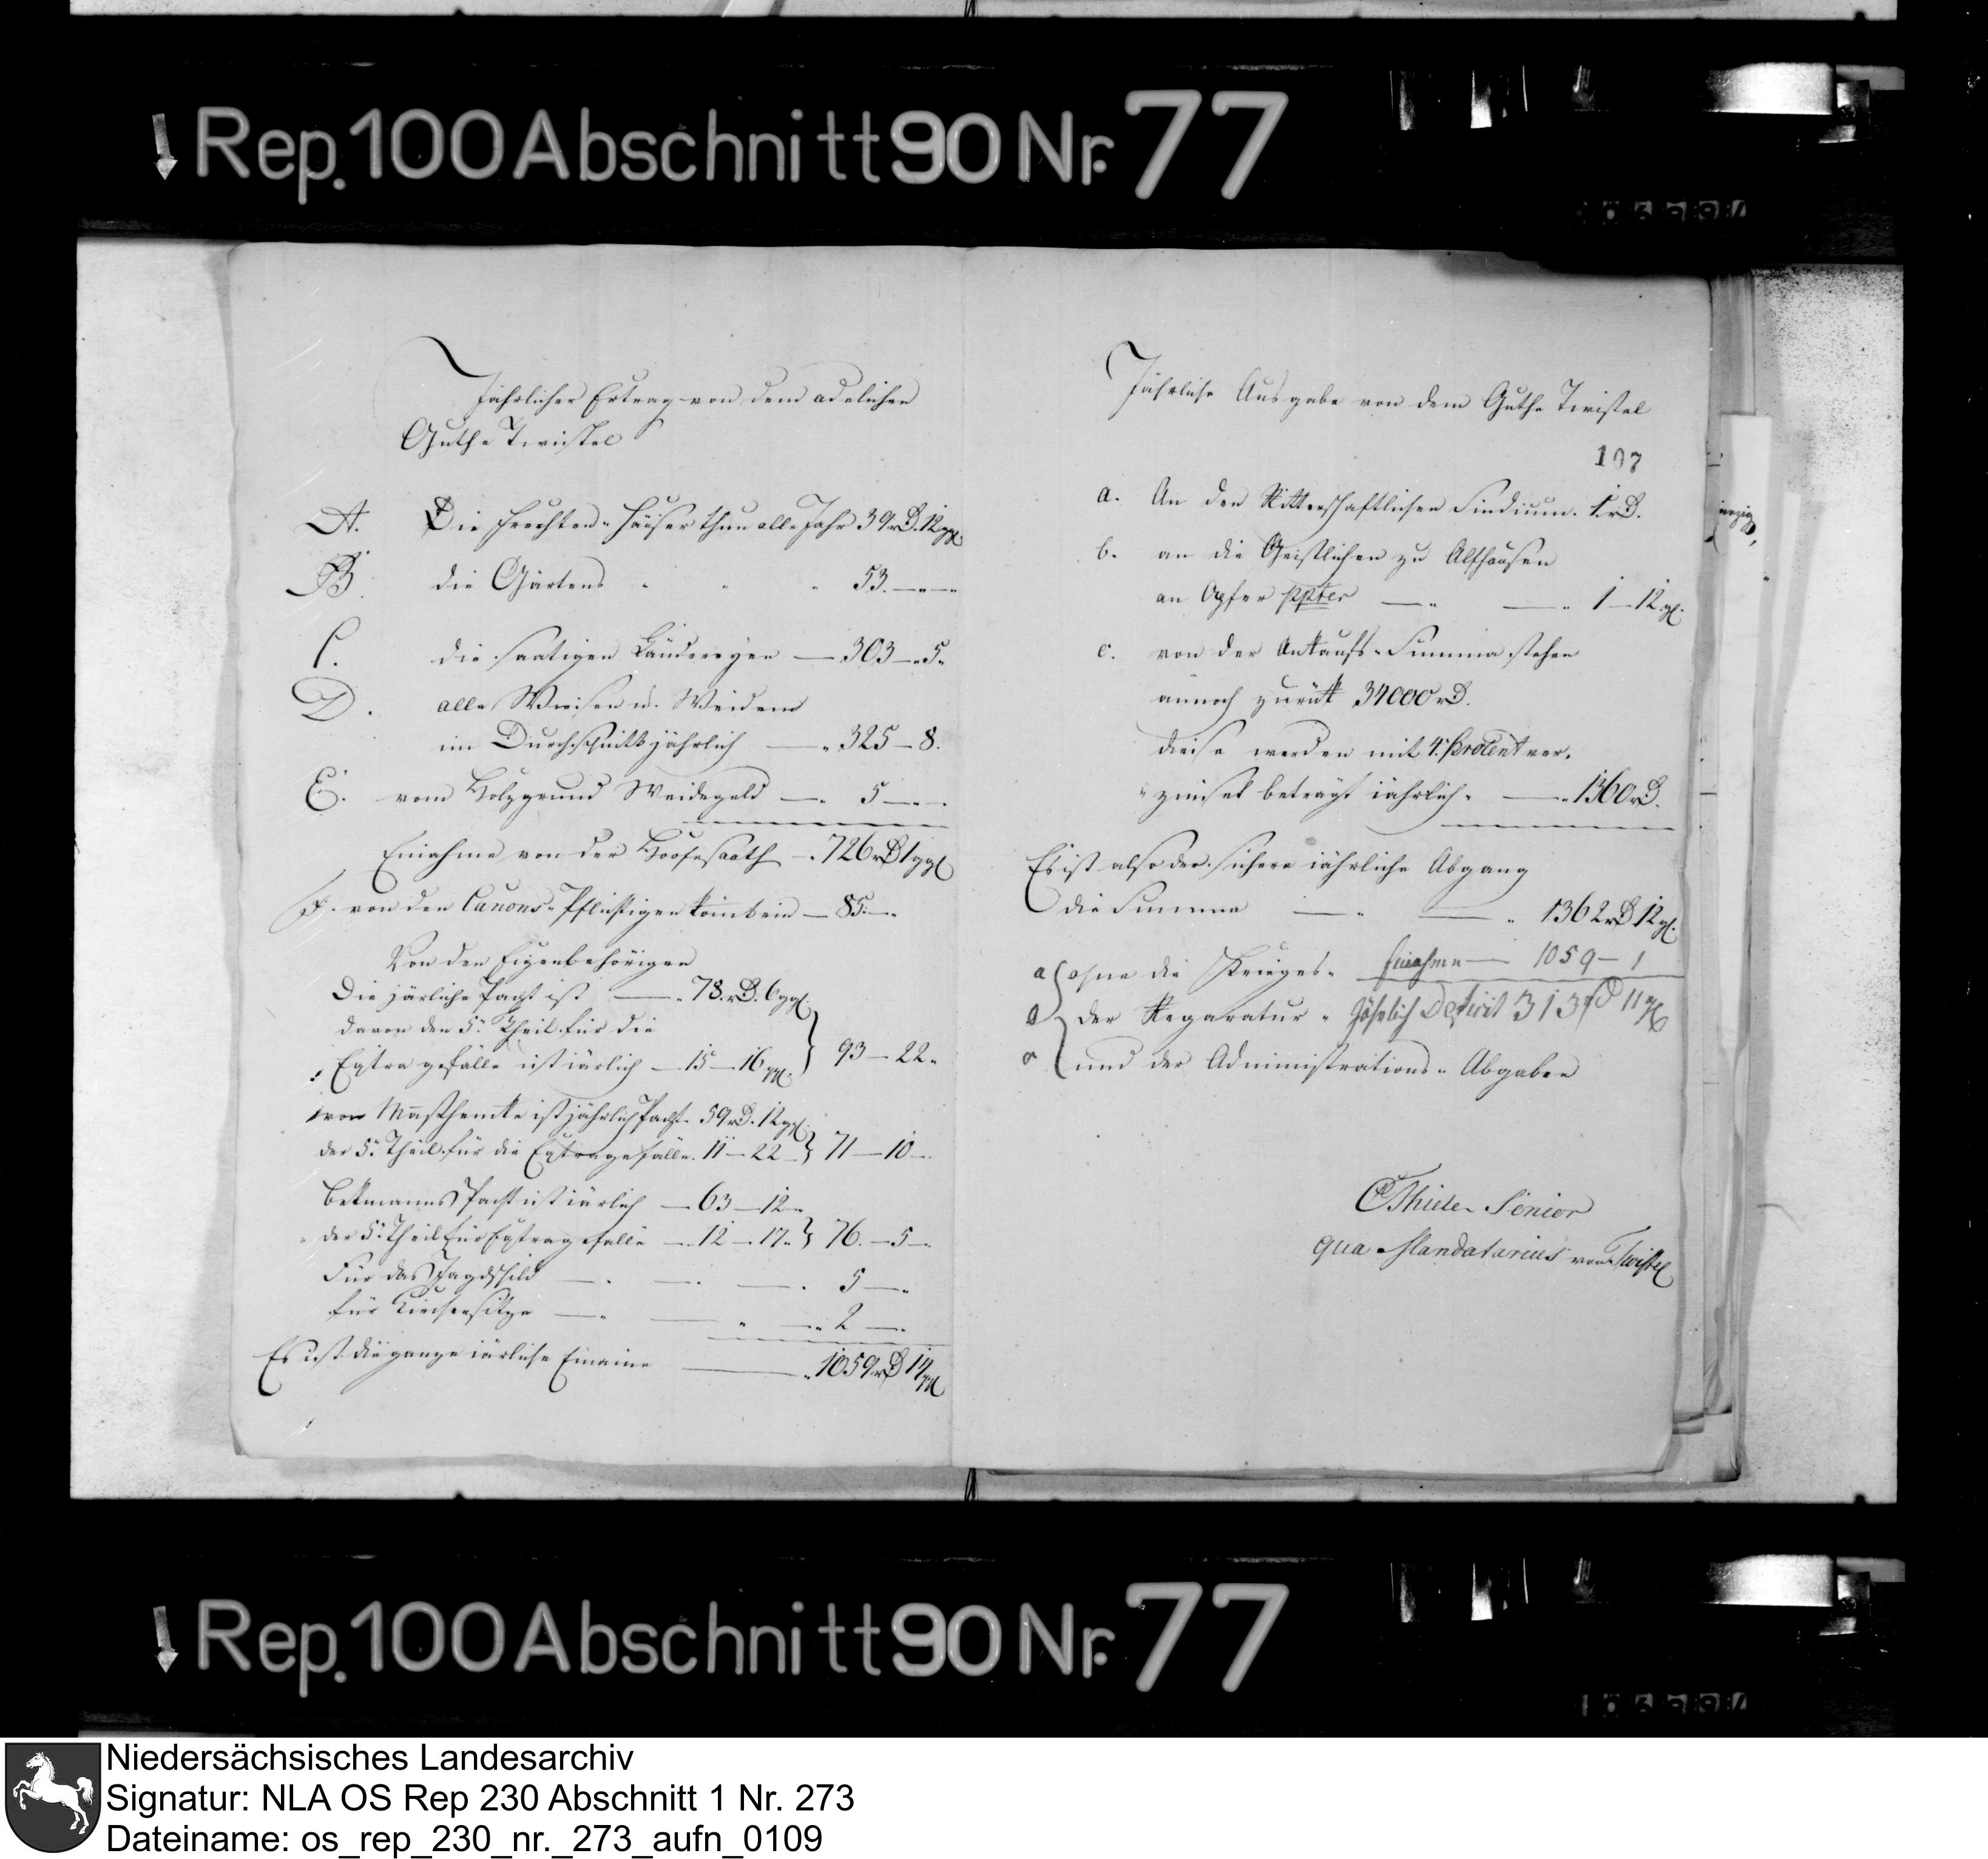 Rep. 100 Abschnitt 90 Nr. 77
Jährlicher Ertrag von dem adelichen
Guthe Twistel
A. Die Feuchten-Häuser thun alle Jahr 39 rD. 12 ggl.
B. die Gärtens " " " 53.—"—"
C. die saatigen Ländereyen — 303—"5"
D. alle Wiesen u. Weidens
im Durchschnitt jährlich —" 325—8.
E. vom Holzgrund Weidegeld —" 5—"—
Einahme von der Hoofesaath —. 726 rD 1 ggl
F. von den Canons-Pflichtigen kömt ein — 85.—"
Von den Eigenbehörigen
Die järliche Pacht ist —". 78. rD. 6 ggl.
davon den 5. Theil für die
Extra gefälle ist iärlich — 15—16 ggl. } 93—22"
von Masthemke ist jährlich Pacht 59 rD. 12 ggl.
der 5. Theil für die Extragefälle. 11—22 } 71—10—
Bekmanns Pacht ist iärlich — 63—12"
der 5. Theil für Extragefälle —. 12—17" } 76.—5—
Für das Jagdschild —. —. —. 5—"
für Kirchensitze —" — " —" 2—"
Es ist die ganze iärliche Einaime — " 1059 rD 1 ggl
Jährliche Ausgabe von dem Guthe Twistel
107
a. An den Ritterschaftlichen Sindicum. 1. rD.
b. an die Geistlichen zu Alfhausen
an Opfer ppter —" —" 1—12 gl.
c. von der Ankaufs-Summa stehen
annoch zurük 34000 rD.
diese werden mit 4. Procent ver-
"zinset beträgt iährlich" —" 1360 rD.
Es ist also der sichere iährliche Abgang
die Summa —" —" 1362 rD 12 gl.
a ohne die Krieges- Einahme — 1059—1
der Reparatur- Jährlich Deficit 313 rD 11 ggl
und der Administrations- Abgaben
Thiele Senior
qua Mandatarius von Twistel
Rep. 100 Abschnitt 90 Nr. 77
Niedersächsisches Landesarchiv
Signatur: NLA OS Rep 230 Abschnitt 1 Nr. 273
Dateiname: os_rep_230_nr._273_aufn_0109